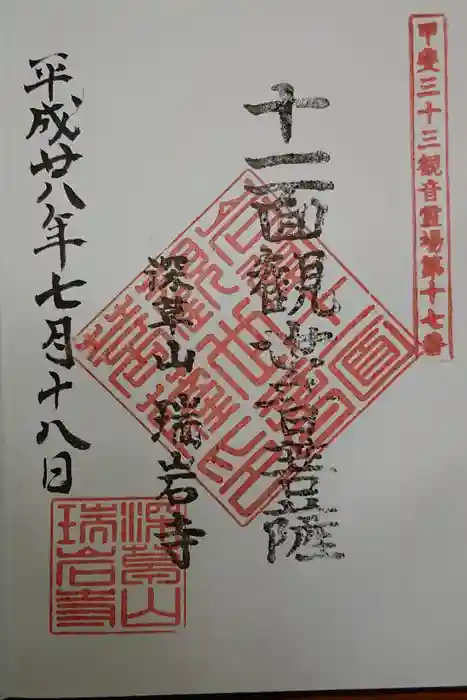 甲斐三十三観音霊場第十七番
十一面観世音菩薩
深草山 瑞岩寺
平成廿八年七月十八日
深草山
瑞岩寺